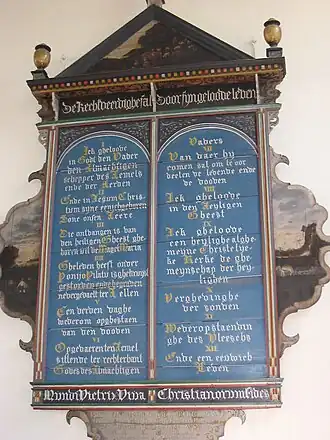 De Rechtveerdighe sal door syn geloove leven
I
Ick gheloove
in Godt den Vader
den Almachtigen
schepper des Hemels
ende der Eerden
II
Ende in Jesum Chris
tum syne eenichgeboren
Sone onsen Heere
III
Die ontfangen is van
den heiligen Gheest ghe
boren uit de Maget Maria
IIII
Gheleden heeft onder
Pontio Pilato is ghekruyst
gestorven ende begraven
nedergedaelt ter Hellen
V
Ten derden daghe
wederom opghestaen
van den dooden
VI
Opgevaren ten Hemel
sittende ter rechterhant
Godes des Almachtigen
Vaders
VII
Van daer hy
comen sal om te oor
deelen de levende ende
de dooden
VIII
Ick gheloove
in den Heiligen
Gheest
IX
Ick gheloove
een heylighe alghe
meyne Christelyc
ke Kerke de ghe
meynschap der hey
ligen
X
Verghevinghe
der sonden
XI
Wederopstaendin
ghe des Vleeschs
XII
Ende een eeuwich
Leven
Christianorum fides